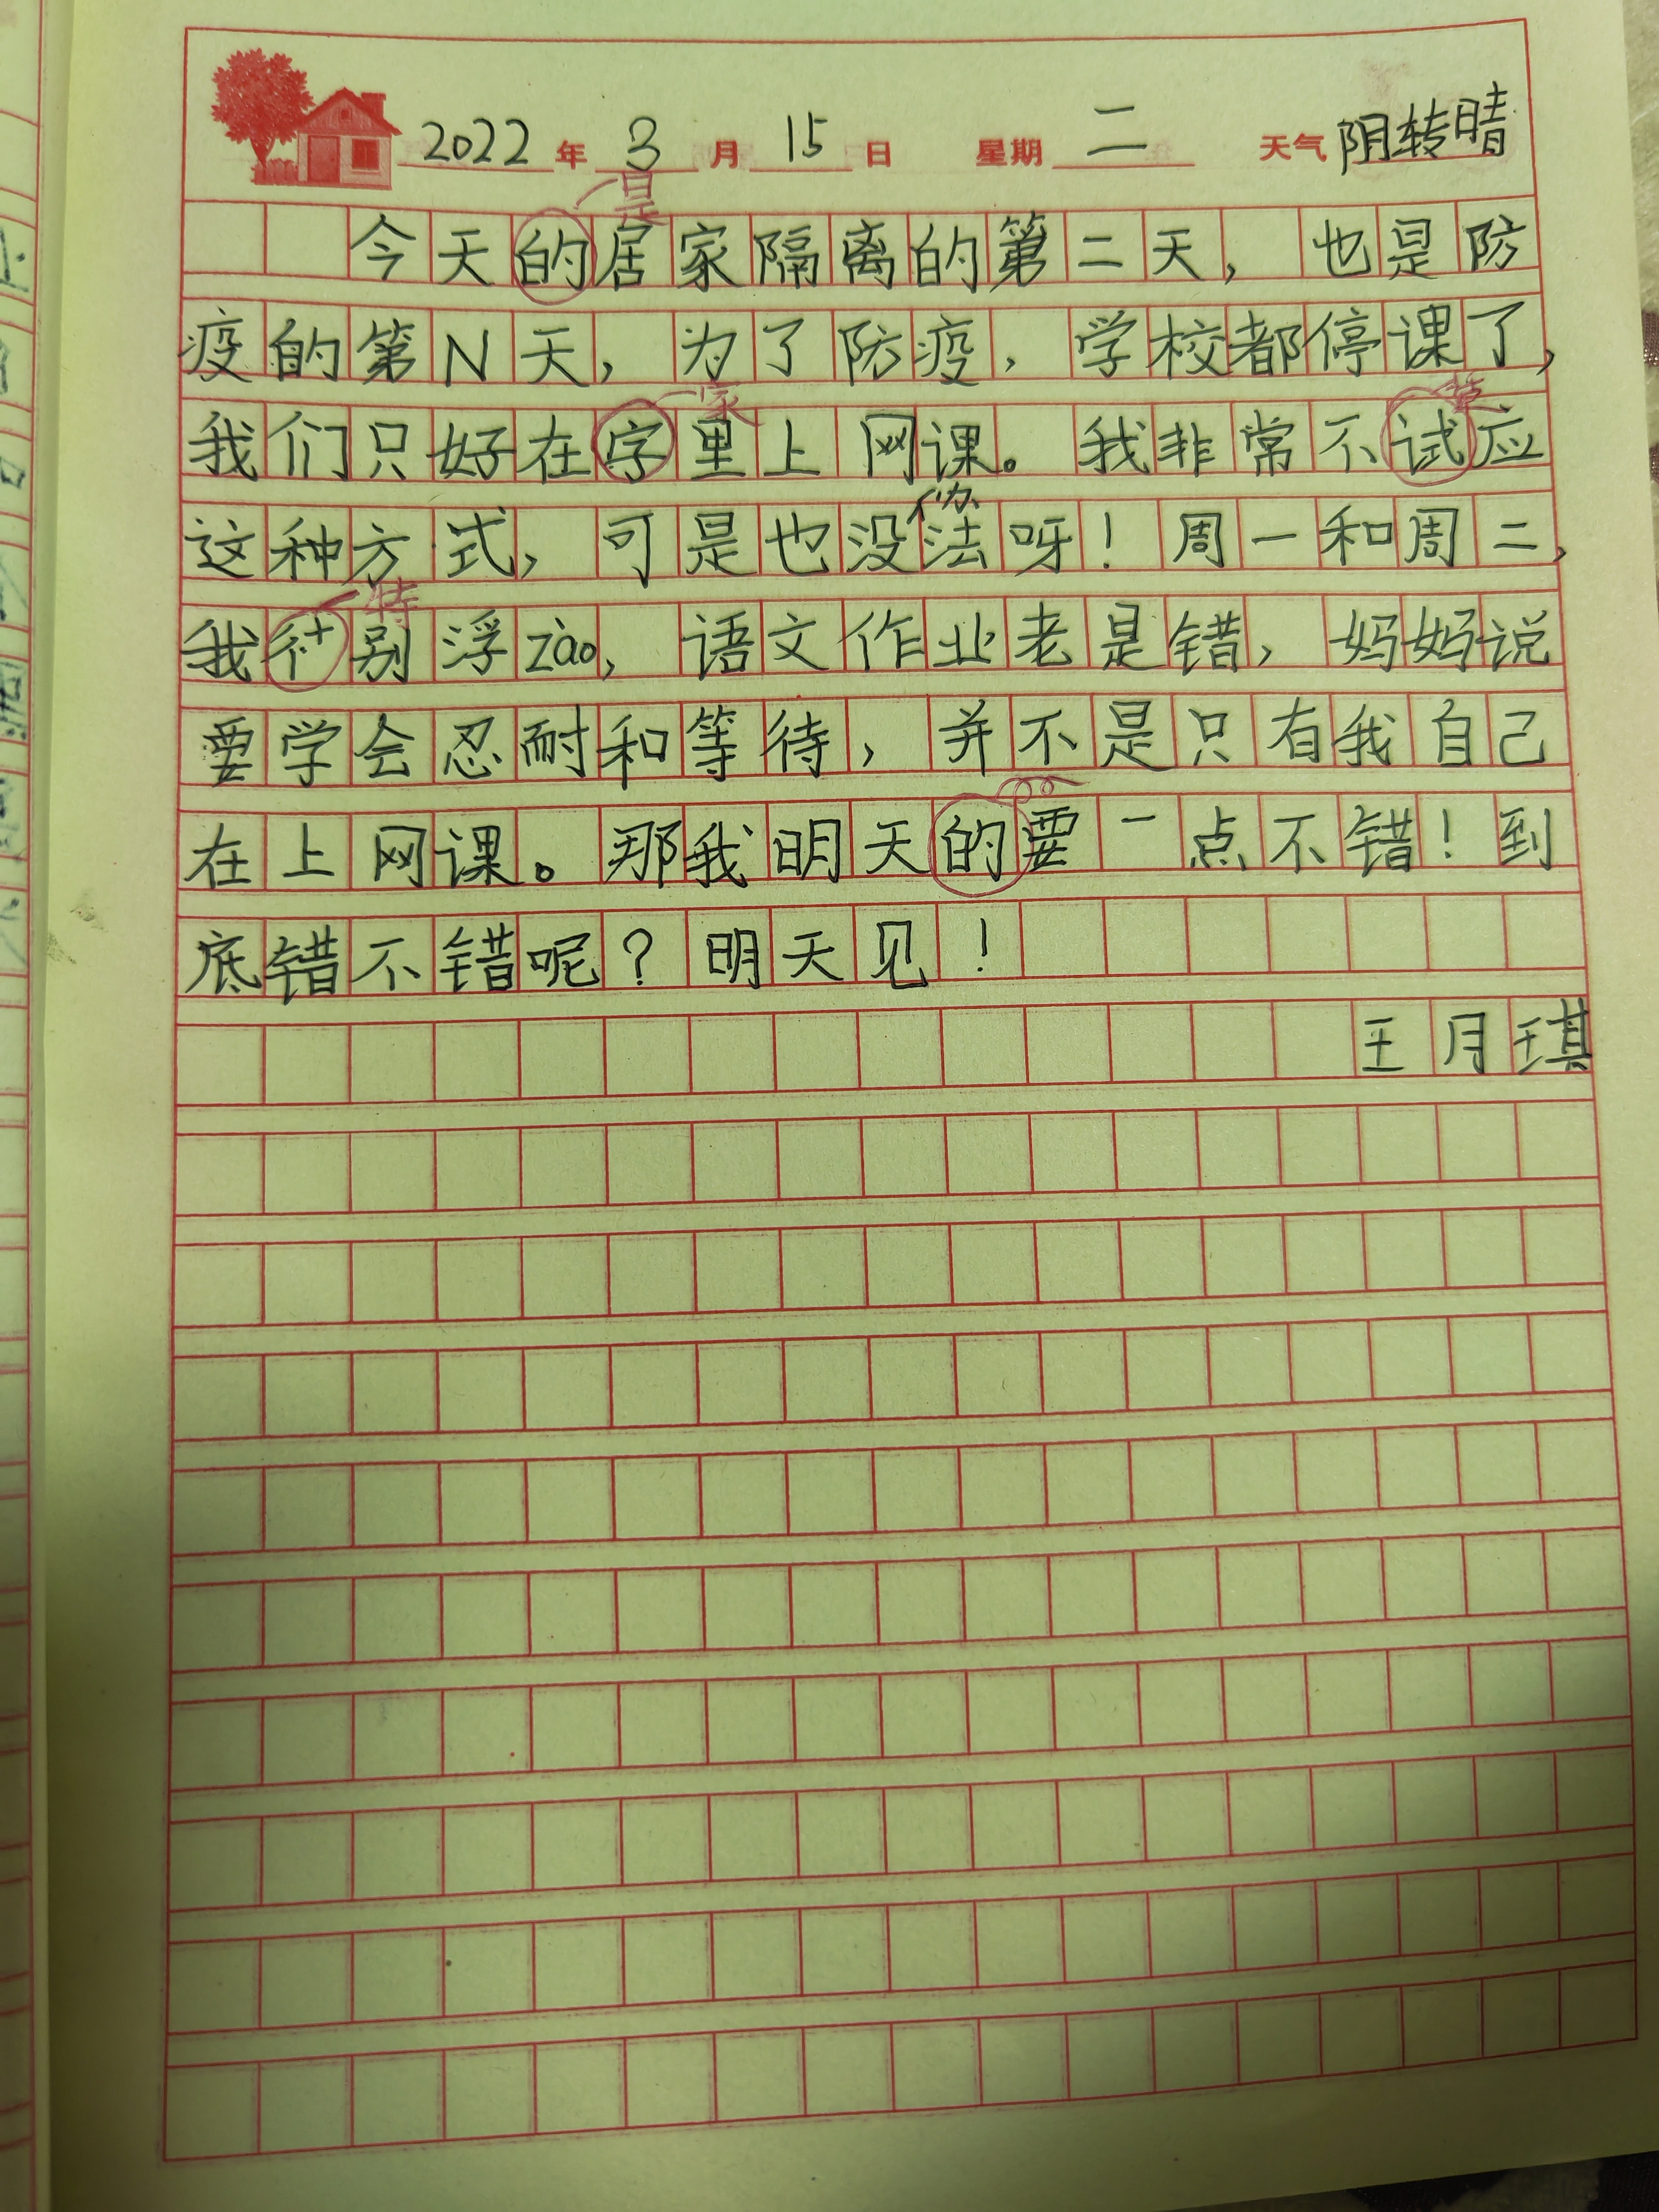 2022年 3月 15日 星期 二 天气 阴转晴
是
今天的居家隔离的第二天，也是防
疫的第N天，为了防疫，学校都停课了，
家
我们只好在字里上网课。我非常不试应
办
这种方式，可是也没法呀！周一和周二，
特
我 别浮zào，语文作业老是错，妈妈说
要学会忍耐和等待，并不是只有我自己
在上网课。那我明天的要一点不错！到
底错不错呢？明天见！
王月琪